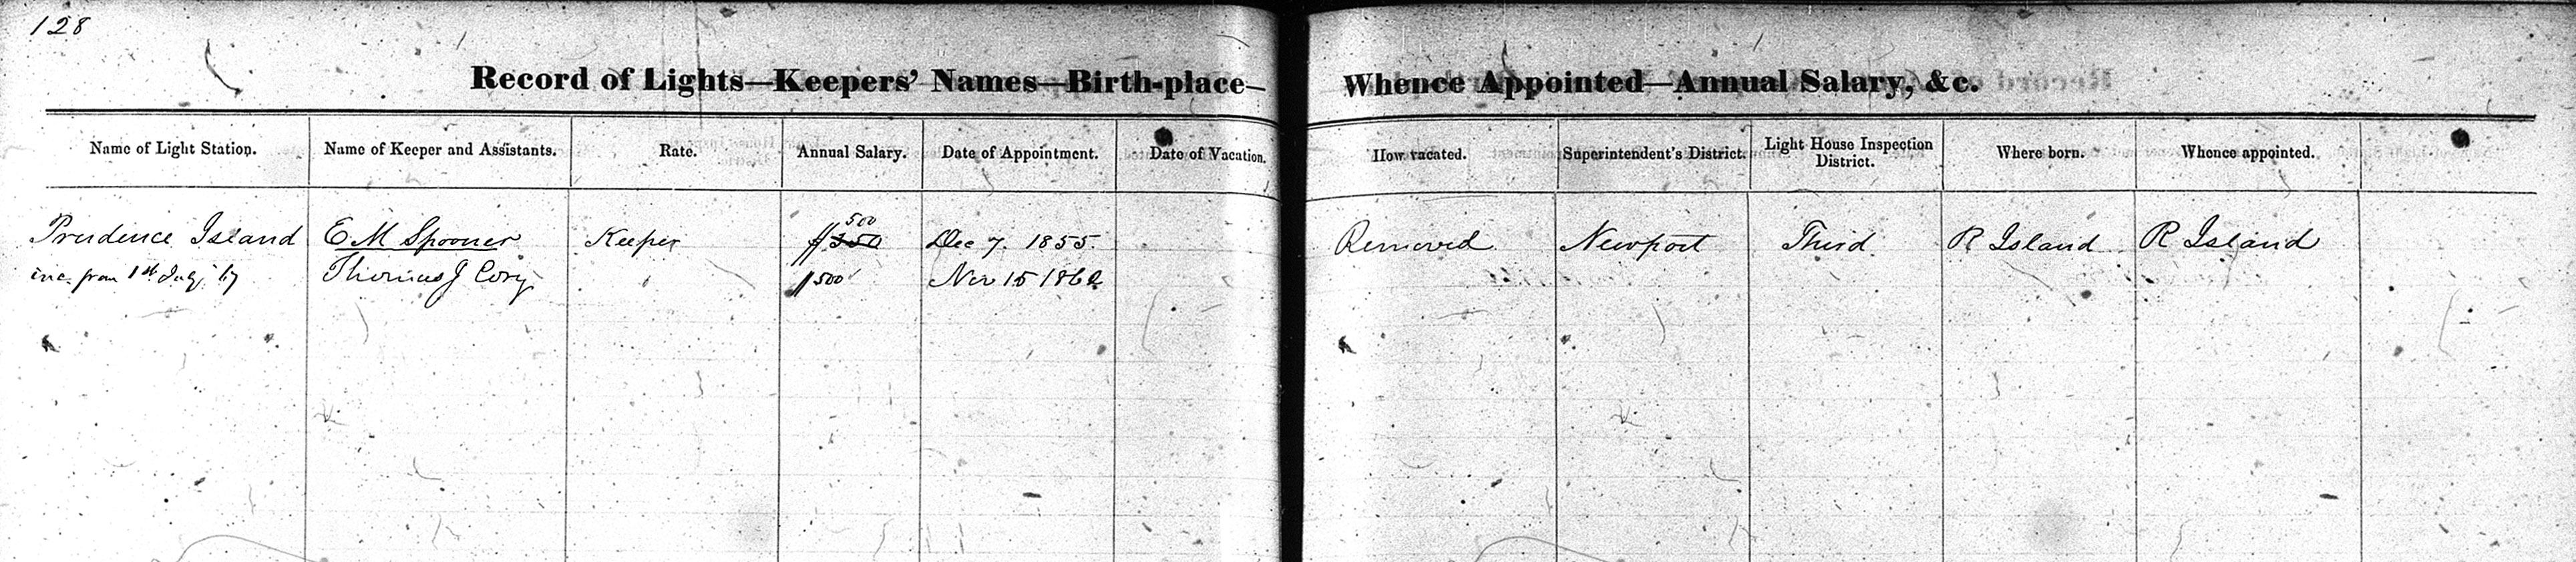 128
Record of Lights—Keepers' Names—Birth-place— Whence Appointed—Annual Salary, &c.
Name of Light Station. Name of Keeper and Assistants. Rate. Annual Salary. Date of Appointment. Date of Vacation. How vacated. Superintendent's District. Light House Inspection District. Where born. Whence appointed.
500
Prudence Island E M Spooner Keeper $350 Dec 7. 1855. Removed Newport Third R Island R Island
inc. from 1st July, 67 Thomas J Cory $500 Nov 15 1862